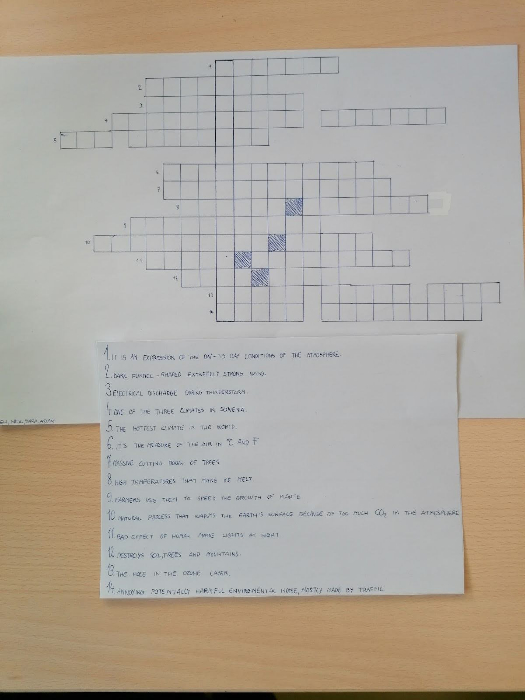 1
2
3
4
5
6
7
8
9
10
11
12
13
14
1. IT IS AN EXPRESSION OF THE DAY-TO DAY CONDITIONS OF THE ATMOSPHERE
2. DARK FUNNEL-SHAPED EXTREMELY STRONG WIND.
3. ELECTRICAL DISCHARGE DURING THUNDERSTORM
4. ONE OF THE THREE CLIMATES IN SLOVENIA.
5. THE HOTTEST CLIMATE IN THE WORLD.
6. IT'S THE MEASURE OF THE AIR IN °C AND °F
7. MASSIVE CUTTING DOWN OF TREES
8. HIGH TEMPERATURES THAT MAKE ICE MELT
9. FARMERS USE THEM TO SPEED THE GROWTH OF PLANTS
10. NATURAL PROCESS THAT WARMS THE EARTH'S SURFACE BECAUSE OF TOO MUCH CO2 IN THE ATMOSPHERE
11. BAD EFFECT OF HUMAN MADE LIGHTS AT NIGHT
12. DESTROYS SOIL, TREES AND MOUNTAINS.
13. THE HOLE IN THE OZONE LAYER.
14. POTENTIALLY HARMFUL ENVIRONMENTAL NOISE, MOSTLY MADE BY TRAFFIC